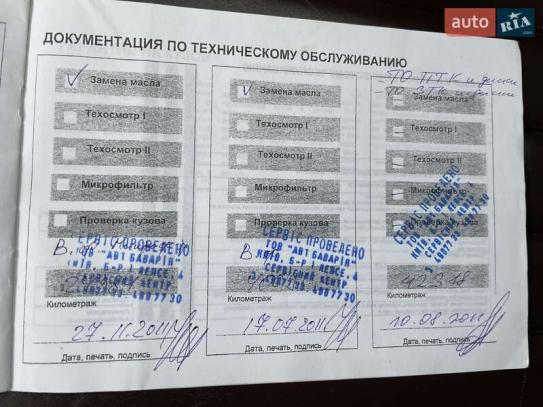 auto RIA.com
ДОКУМЕНТАЦИЯ ПО ТЕХНИЧЕСКОМУ ОБСЛУЖИВАНИЮ
Замена масла
Техосмотр I
Техосмотр II
Микрофильтр
Проверка кузова
СЕРВІС ПРОВЕДЕНО
ТОВ "АВТ БАВАРІЯ"
КИЇВ, Б-Р І ЛЕПСЕ, 4
СЕРВІСНИЙ ЦЕНТР
4907730
Километраж
27.11.2011
Дата, печать, подпись
Замена масла
Техосмотр I
Техосмотр II
Микрофильтр
Проверка кузова
СЕРВІС ПРОВЕДЕНО
ТОВ "АВТ БАВАРІЯ"
КИЇВ, Б-Р І ЛЕПСЕ, 4
СЕРВІСНИЙ ЦЕНТР
4907730
Километраж
17.07.2011
Дата, печать, подпись
ТО ПТК и диски
ТО ЗТК и диски
Замена масла
Техосмотр I
Техосмотр II
Микрофильтр
СЕРВІС ПРОВЕДЕНО
4907730
42318
Километраж
10.08.2011
Дата, печать, подпись